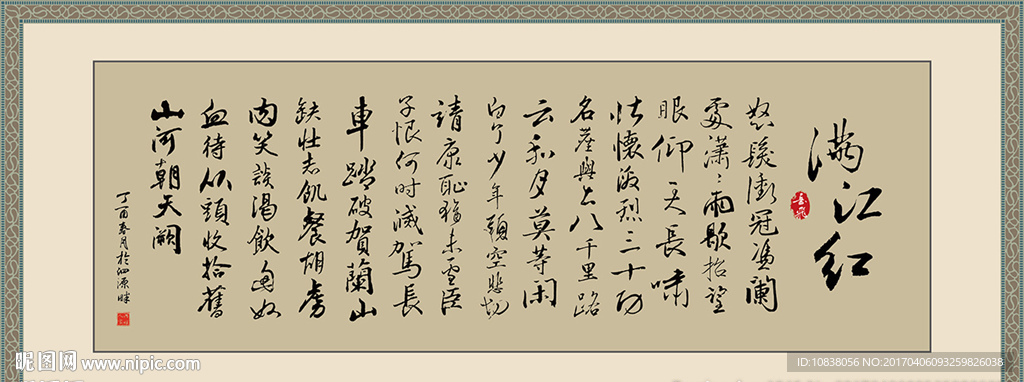 满江红
怒髮衝冠憑闌
處瀟〻雨歇抬望
眼仰天長嘯
壯懷激烈三十功
名塵與土八千里路
云和月莫等闲
白了少年頭空悲切
靖康恥猶未雪臣
子恨何时滅駕長
車踏破賀蘭山
缺壯志飢餐胡虜
肉笑談渴飲匈奴
血待从頭收拾舊
山河朝天闕
丁酉春月於泗源畔
昵图网 www.nipic.com
ID:10838056 NO:20170406093259826038